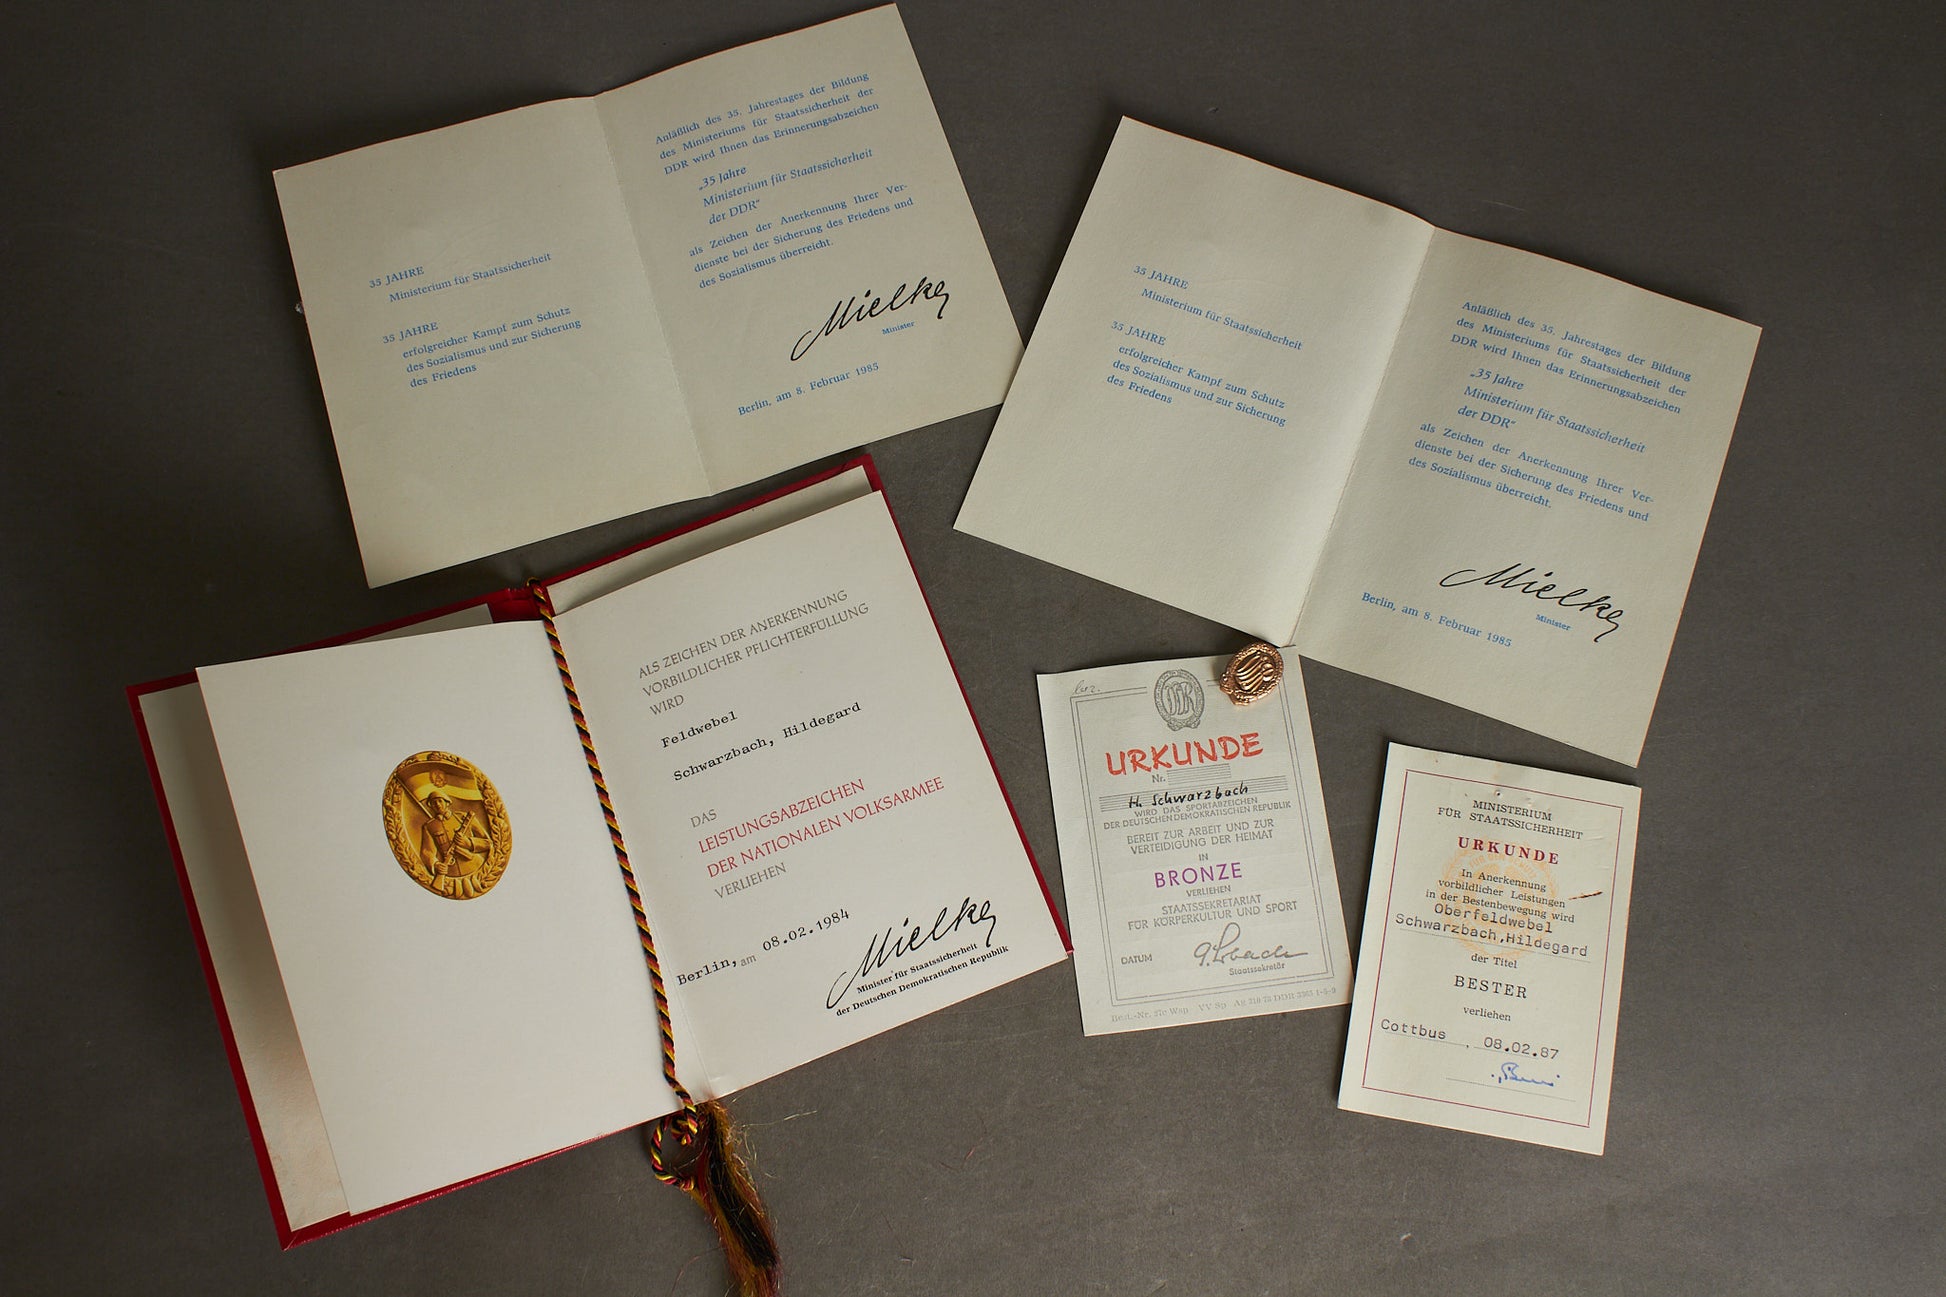 35 JAHRE
Ministerium für Staatssicherheit
35 JAHRE
erfolgreicher Kampf zum Schutz
des Sozialismus und zur Sicherung
des Friedens
Anläßlich des 35. Jahrestages der Bildung
des Ministeriums für Staatssicherheit der
DDR wird Ihnen das Erinnerungsabzeichen
„35 Jahre
Ministerium für Staatssicherheit
der DDR“
als Zeichen der Anerkennung Ihrer Ver-
dienste bei der Sicherung des Friedens und
des Sozialismus überreicht.
Mielke
Minister
Berlin, am 8. Februar 1985
35 JAHRE
Ministerium für Staatssicherheit
35 JAHRE
erfolgreicher Kampf zum Schutz
des Sozialismus und zur Sicherung
des Friedens
Anläßlich des 35. Jahrestages der Bildung
des Ministeriums für Staatssicherheit der
DDR wird Ihnen das Erinnerungsabzeichen
„35 Jahre
Ministerium für Staatssicherheit
der DDR“
als Zeichen der Anerkennung Ihrer Ver-
dienste bei der Sicherung des Friedens und
des Sozialismus überreicht.
Mielke
Minister
Berlin, am 8. Februar 1985
ALS ZEICHEN DER ANERKENNUNG
VORBILDLICHER PFLICHTERFÜLLUNG
WIRD
Feldwebel
Schwarzbach, Hildegard
DAS
LEISTUNGSABZEICHEN
DER NATIONALEN VOLKSARMEE
VERLIEHEN
Berlin, am 08.02.1984
Mielke
Minister für Staatssicherheit
der Deutschen Demokratischen Republik
DDR
URKUNDE
Nr.
H. Schwarzbach
WIRD DAS SPORTABZEICHEN
DER DEUTSCHEN DEMOKRATISCHEN REPUBLIK
BEREIT ZUR ARBEIT UND ZUR
VERTEIDIGUNG DER HEIMAT
IN
BRONZE
VERLIEHEN
STAATSSEKRETARIAT
FÜR KÖRPERKULTUR UND SPORT
DATUM
Staatssekretär
Best.-Nr. 27c Wsp VV Sp Ag 310 73 DDR 3365 1-5-9
MINISTERIUM
FÜR STAATSSICHERHEIT
URKUNDE
In Anerkennung
vorbildlicher Leistungen
in der Bestenbewegung wird
Oberfeldwebel
Schwarzbach,Hildegard
der Titel
BESTER
verliehen
Cottbus , 08.02.87